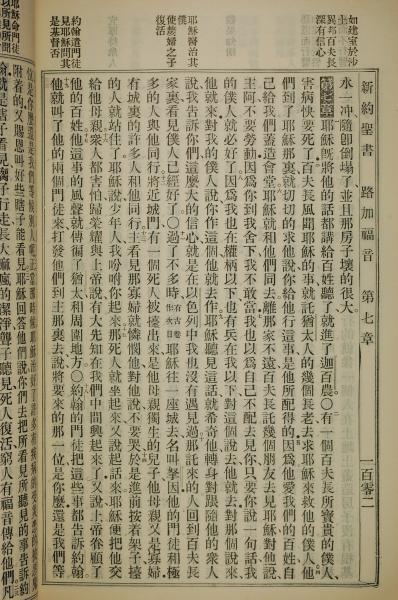 新約聖書 路加福音 第七章 一百零二
如建室於沙
異邦百夫長
深有信心
耶穌醫治其
使嫠婦之子
復活
約翰遣門徒
見耶穌問其
是基督否
耶穌命門徒
以所見所聞
水一冲隨卽倒塌了並且那房子壞的很大
第七章 耶穌旣將他的話都講給百姓聽了就進了迦百農〇有一個百夫長所寶貴的僕人
害病快要死了百夫長風聞耶穌的事就託猶太人的幾個長老去求耶穌來救他的僕人他
們到了耶穌那裏就切切的求他說你給他行這事是他所配得的因爲他愛我們的百姓自
己給我們蓋造會堂耶穌就和他們同去離那家不遠百夫長託幾個朋友去見耶穌對他說
主阿不要勞動因爲你到我舍下我不敢當我也以爲自己不配去見你只要你說一句話我
的僕人就必好了因爲我也在權柄以下也有兵在我以下對這個說去他就去對那個說來
他就來對我的僕人說你作這個他就去作耶穌聽見這話就希奇他轉身對跟隨他的衆人
說我告訴你們這麼大的信心就是在以色列中我也沒有遇見過那託來的人回到百夫長
家裏看見僕人已經好了〇過了不多時有古卷作次日耶穌往一座城去名叫拏因他的門徒和極
多的人與他同行將近城門有一個死人被擡出來是他母親獨生的兒子他母親又是寡婦
有城裏的許多人和他同行主看見那寡婦就憐憫他對他說不要哭於是進前按着架子擡
的人就站住了耶穌說少年人我吩咐你起來那死人就坐起來又說起話來耶穌便把他交
給他母親衆人都害怕歸榮耀與上帝說有大先知在我們中間興起來了又說上帝眷顧了
他的百姓他這事的風聲就傳徧了猶太和周圍地方〇約翰的門徒把這些事都告訴約翰
他就叫了他的兩個門徒來打發他們到主那裏去說將要來的那一位是你麼還是我們等
附着的又賜恩叫好些瞎子能看見耶穌回答他們說你們去把所看見所聽見的事告訴約
翰就是瞎子看見瘸子行走長大痲瘋的潔淨聾子聽見死人復活窮人有福音傳給他們凡